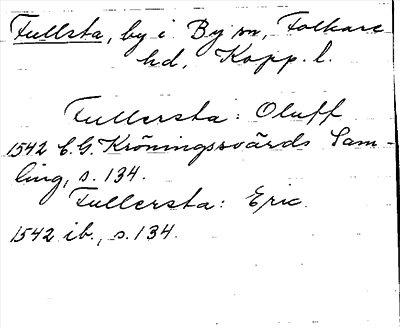 Fullsta, by i By sn, Folkare
hd, Kopp. l.
Fullersta: Oluff
1542 C. G. Kröningssvärds Sam-
ling, s. 134.
Fullersta: Eric
1542 ib., s. 134.